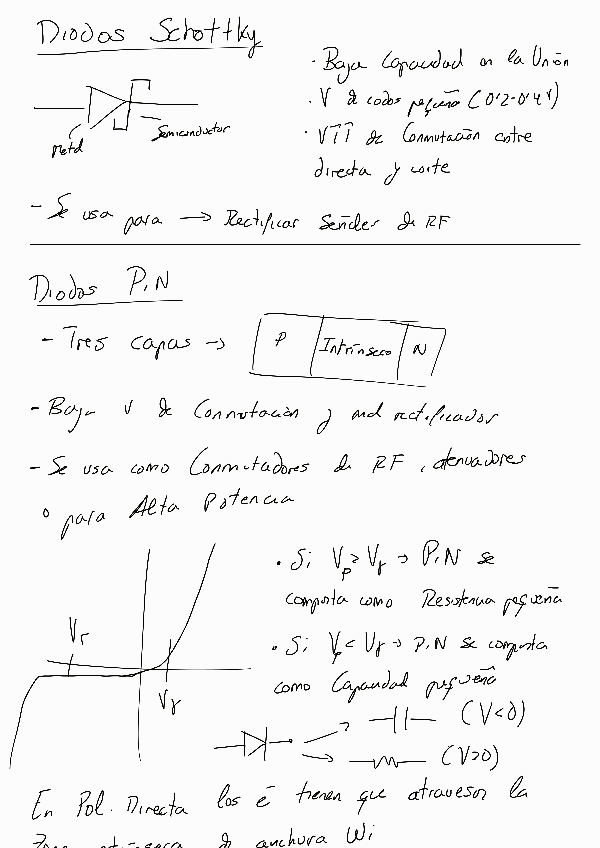 Diodos Schottky
Metal
Semiconductor
· Baja Capacidad en la Unión
· V de codos pequeña (0'2-0'4V)
· V↑↑ de Conmutación entre
directa y corte
- Se usa para → Rectificar Señales de RF
Diodos P.i.N
- Tres capas → P Intrínseco N
- Baja V de Conmutación y mal rectificador
- Se usa como Conmutadores de RF, atenuadores
o para Alta Potencia
· Si Vp > Vγ → P.i.N se
comporta como Resistencia pequeña
· Si Vp < Vγ → P.i.N se comporta
como Capacidad pequeña
Vr
Vγ
(V<0)
(V>0)
En Pol. Directa los é tienen que atravesar la
Zona intrínseca de anchura Wi